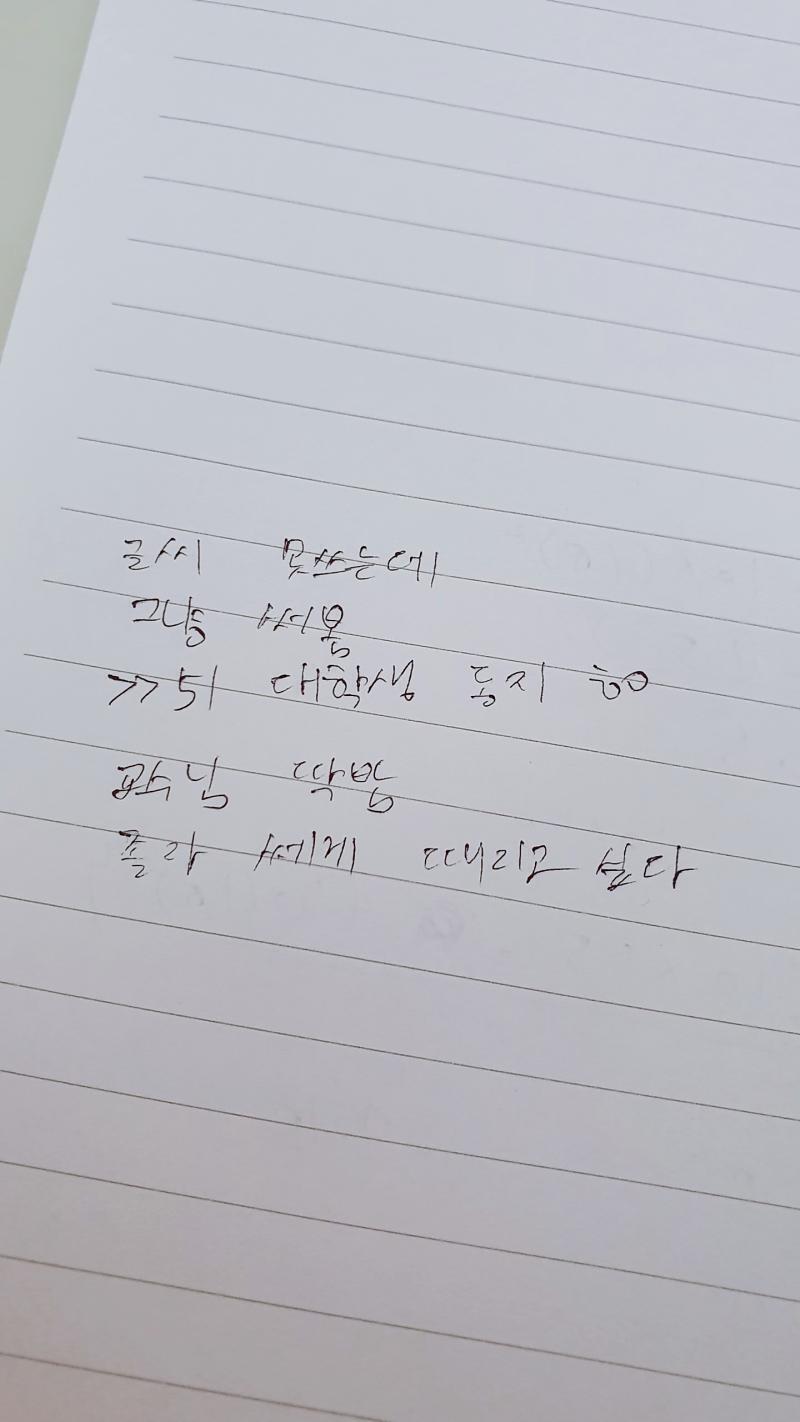 글씨 못쓰는데
그냥 써봄
>>51 대학생 동지 ㅎㅇ
교수님 딱밤
졸라 쎄게 때리고 싶다